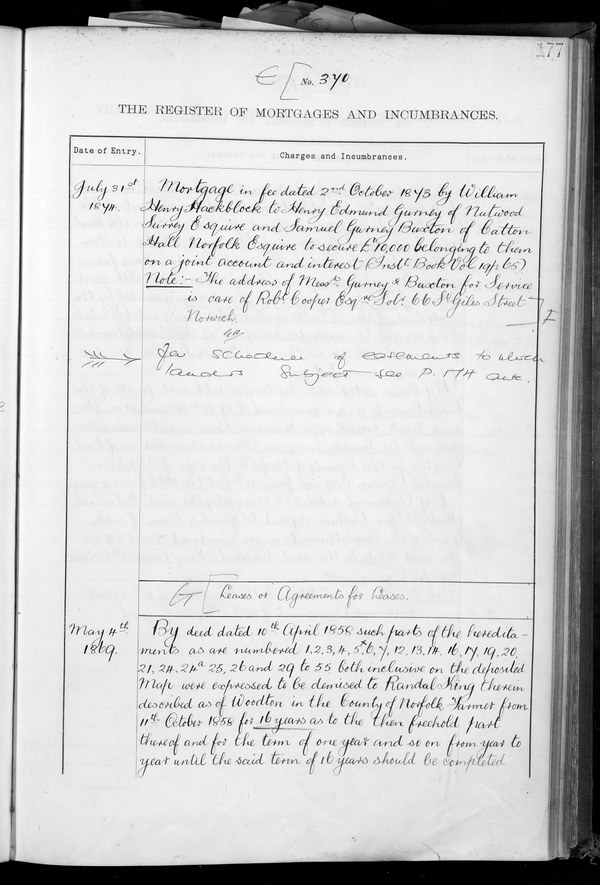 177
E [ No. 370
THE REGISTER OF MORTGAGES AND INCUMBRANCES.
Date of Entry.
Charges and Incumbrances.
July 31st
1874.
Mortgage in fee dated 2nd October 1873 by William
Henry Hackblock to Henry Edmund Gurney of Nutwood
Surrey Esquire and Samuel Gurney Buxton of Catton
Hall Norfolk Esquire to secure £70,000 belonging to them
on a joint account and interest (Instt. Book Vol 19/1 65)
Note:- The address of Messrs Gurney & Buxton for Service
is care of Robt Cooper Esqre Solr 66 St Giles Street
Norwich
] E
for schedule of easements to which
land is subject see P. 174 ante.
G [ Leases or Agreements for Leases.
May 4th
1869.
By deed dated 10th April 1858 such parts of the heredita-
ments as are numbered 1, 2, 3, 4, 5, 6, 7, 12, 13, 14, 16, 17, 19, 20,
21, 24, 24a 25, 26 and 29 to 55 both inclusive on the deposited
Map were expressed to be demised to Randal King therein
described as of Woodton in the County of Norfolk Farmer from
11th October 1858 for 16 years as to the then freehold part
thereof and for the term of one year and so on from year to
year until the said term of 16 years should be completed